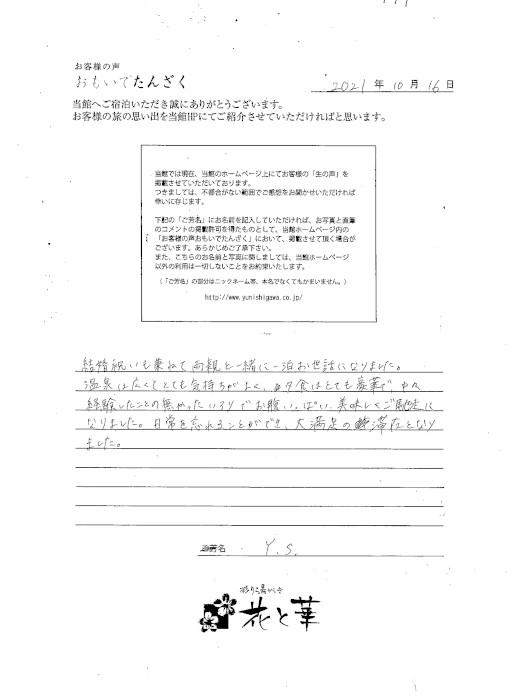 お客様の声
おもいでたんざく
2021 年 10 月 16 日
当館へご宿泊いただき誠にありがとうございます。
お客様の旅の思い出を当館HPにてご紹介させていただければと思います。
当館では現在、当館のホームページ上にてお客様の「生の声」を
掲載させていただいております。
つきましては、不都合がない範囲でご感想をお聞かせいただければ
幸いに存じます。
下記の「ご芳名」にお名前を記入していただければ、お写真と直筆
のコメントの掲載許可を得たものとして、当館ホームページ内の
「お客様の声おもいでたんざく」において、掲載させて頂く場合が
ございます。あらかじめご了承下さい。
また、こちらのお名前と写真に関しましては、当館ホームページ
以外の利用は一切しないことをお約束いたします。
(「ご芳名」の部分はニックネーム等、本名でなくてもかまいません。)
http://www.yunishigawa.co.jp/
結婚祝いも兼ねて両親と一緒に一泊お世話になりました。
温泉は広くてとても気持ちがよく、夕食はとても豪華で、中々
経験したことの無かったいろりでお腹いっぱい、美味しくご馳走に
なりました。日常を忘れることができ、大満足の滞在となり
ました。
ご芳名 Y.S.
花と華